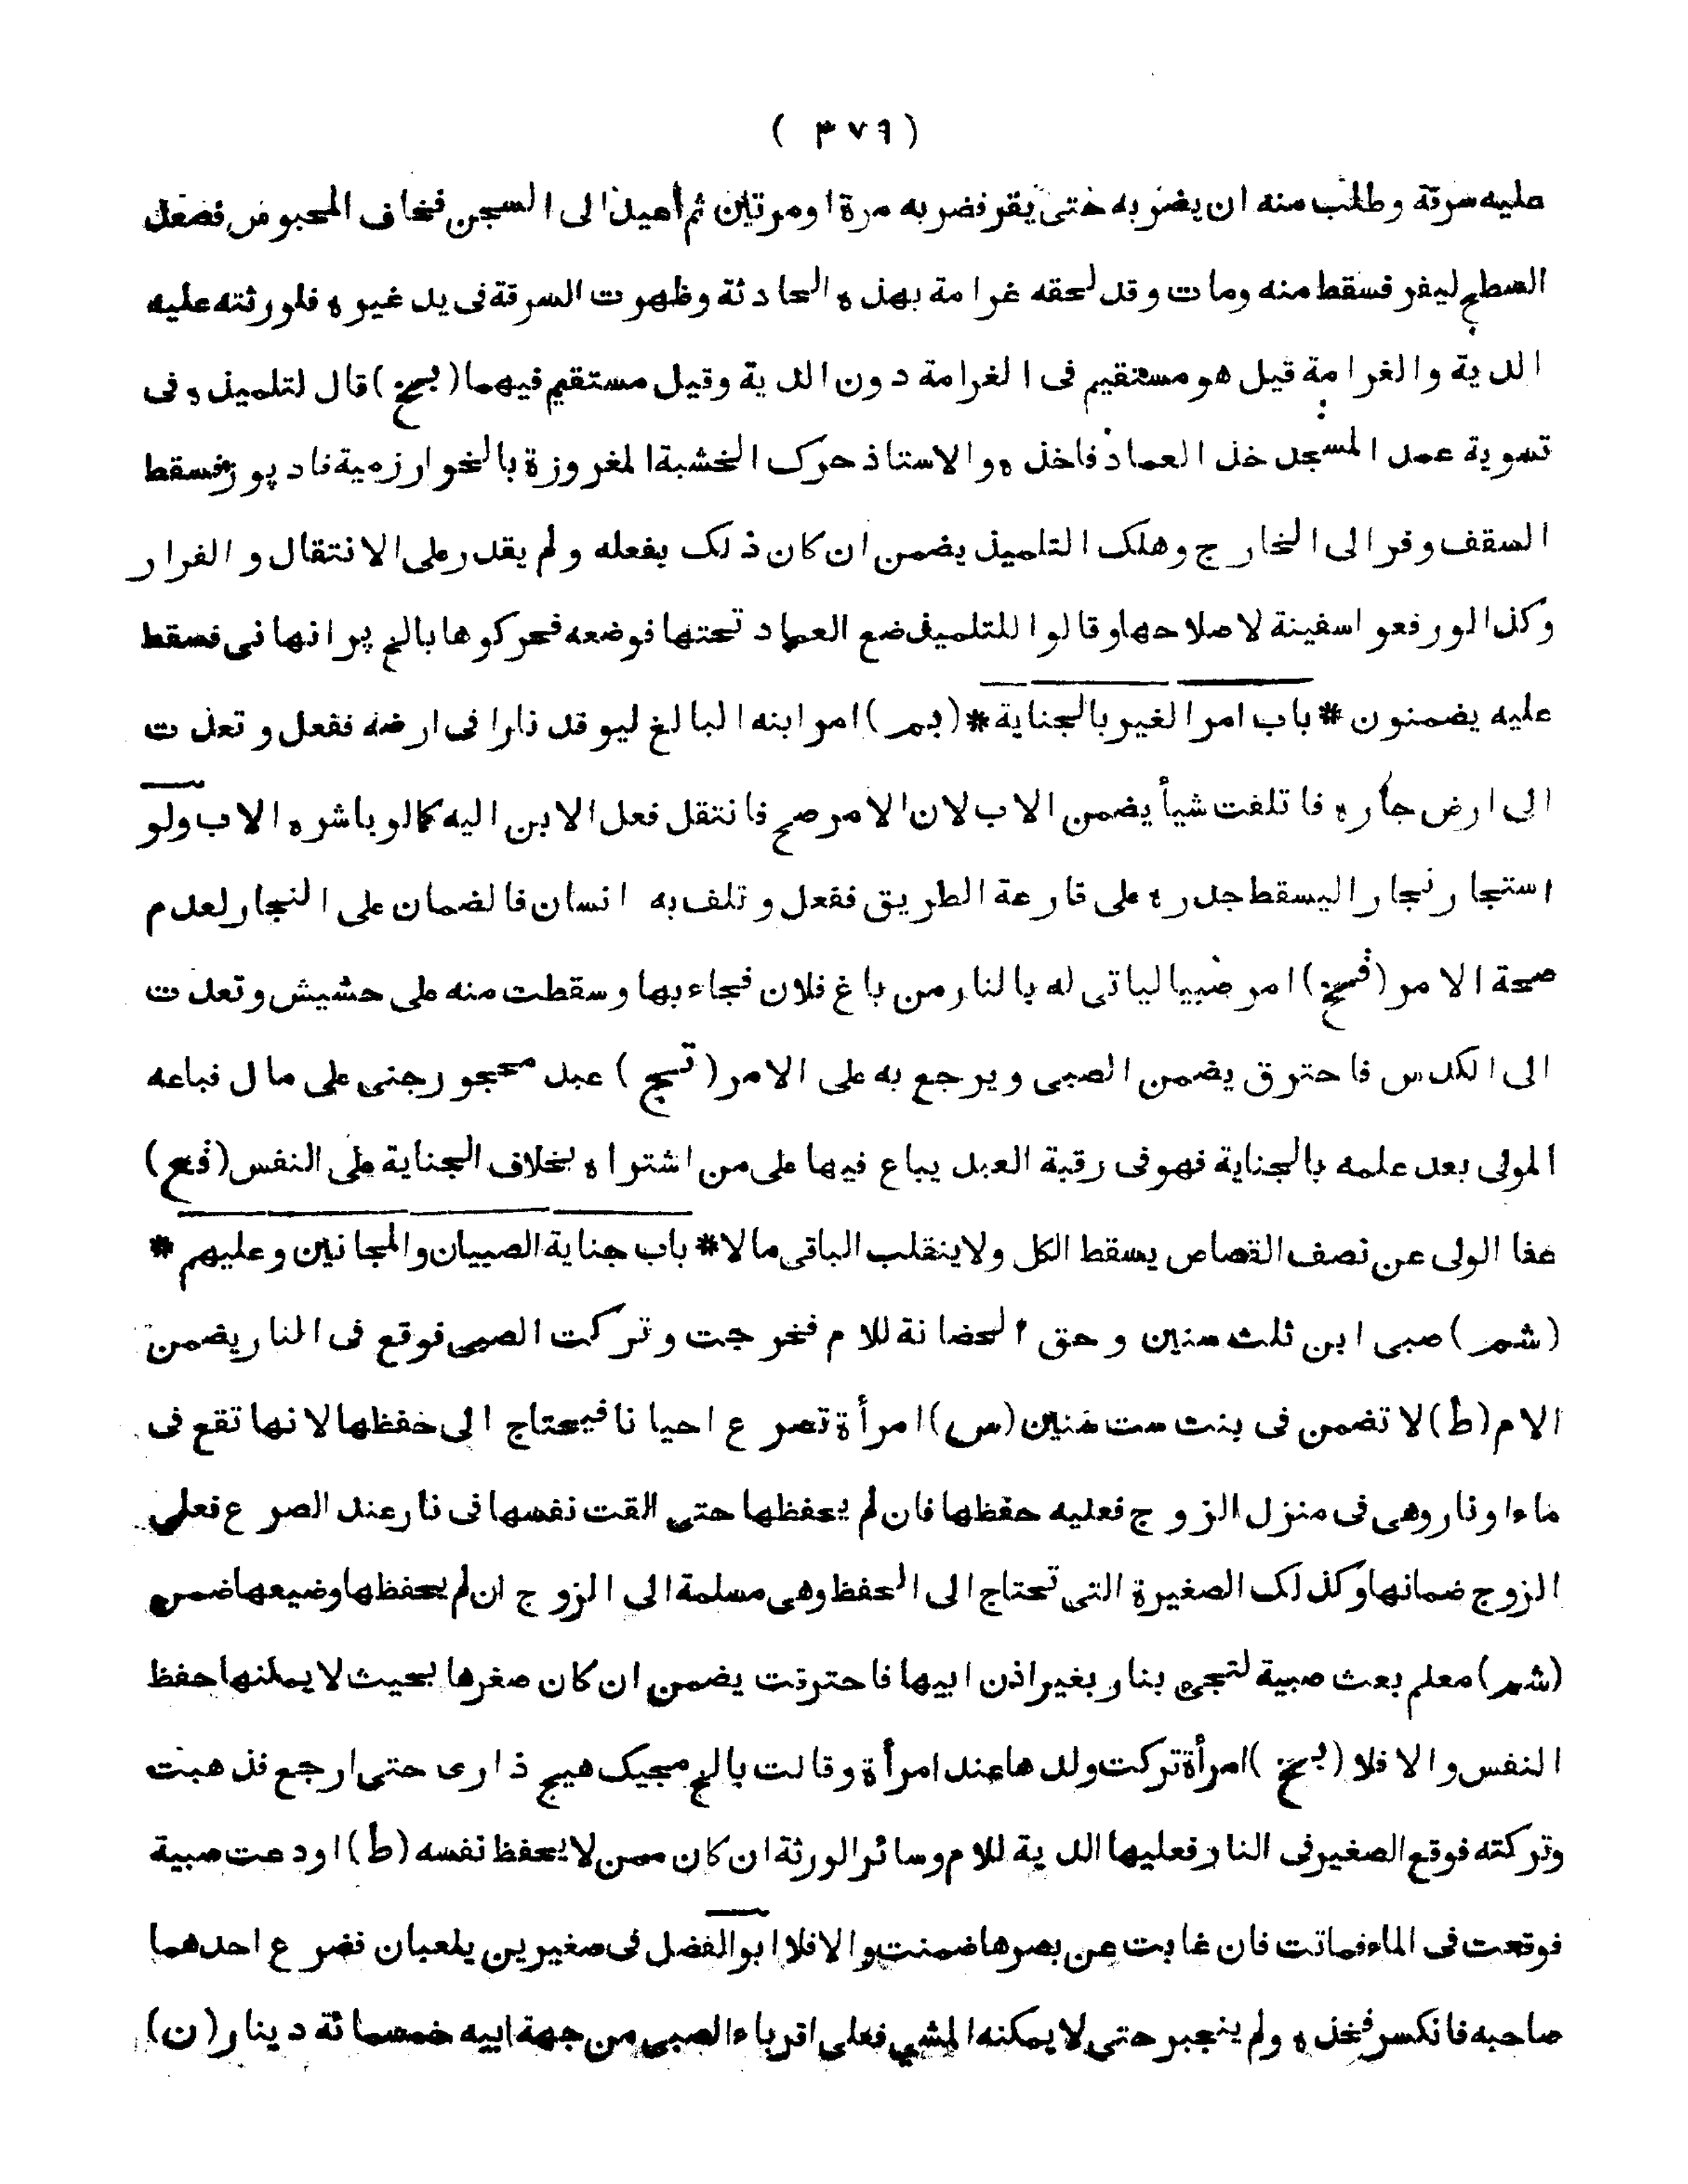 ( ٣٧٩ )
عليه سرقة وطلب منه ان يضربه حتى يقر فضربه مرة او مرتين ثم أعيد الى السجن فخاف المحبوس فصعد
السطح ليفر فسقط منه ومات وقد لحقه غرامة بهذه الحادثة وظهرت السرقة فى يد غيره فلورثته عليه
الدية والغرامة قيل هو مستقيم فى الغرامة دون الدية وقيل مستقيم فيهما (بخ) قال لتلميذه فى
تسوية عمد المسجد خذ العماد فاخذه والاستاذ حرك الخشبة المغروزة بالخوارزمية فسقط
السقف وفر الى الخارج وهلك التلميذ يضمن ان كان ذلك بفعله ولم يقدر على الانتقال و الفرار
وكذا لو رفعوا سفينة لاصلاحها وقالوا للتلميذ ضع العماد تحتها فوضعه فحركوها فسقط
عليه يضمنون * باب امر الغير بالجناية * (بم) امر ابنه البالغ ليوقد نارا فى ارضه ففعل و تعدت
الى ارض جاره فاتلفت شيأ يضمن الاب لان الامر صح فانتقل فعل الابن اليه كما لو باشره الاب ولو
استجار نجارا ليسقط جدره على قارعة الطريق ففعل و تلف به انسان فالضمان على النجار لعدم
صحة الامر (فسخ) امر صبيا لياتى له بالنار من باغ فلان فجاء بها وسقطت منه على حشيش وتعدت
الى الكدس فاحترق يضمن الصبى ويرجع به على الامر ( عبد محجور جنى على مال فباعه
المولى بعد علمه بالجناية فهو فى رقبة العبد يباع فيها على من اشتراه بخلاف الجناية على النفس (فع)
عفا الولى عن نصف القصاص يسقط الكل ولا ينقلب الباقى مالا * باب جناية الصبيان والمجانين وعليهم *
(شم) صبى ابن ثلث سنين وحق الحضانة للام فخرجت وتركت الصبى فوقع فى النار يضمن
الام (ط) لا تضمن فى بنت ست سنين (س) امرأة تصرع احيانا فيحتاج الى حفظها لانها تقع فى
ماء او نار وهى فى منزل الزوج فعليه حفظها فان لم يحفظها حتى القت نفسها فى نار عند الصرع فعلى
الزوج ضمانها وكذلك الصغيرة التى تحتاج الى الحفظ وهى مسلمة الى الزوج ان لم يحفظها وضيعها ضمن
(شم) معلم بعث صبية لتجى بنار بغير اذن ابيها فاحترقت يضمن ان كان صغرها بحيث لا يمكنها حفظ
النفس والا فلا (بخ) امرأة تركت ولدها عند امرأة وقالت حتى ارجع فذهبت
وتركته فوقع الصغير فى النار فعليها الدية للام وسائر الورثة ان كان ممن لا يحفظ نفسه (ط) اودعت صبية
فوقعت فى الماء فماتت فان غابت عن بصرها ضمنت والا فلا ابو الفضل فى صغيرين يلعبان فصرع احدهما
صاحبه فانكسر فخذه ولم ينجبر حتى لا يمكنه المشى فعلى اقرباء الصبى من جهة ابيه خمسمائة دينار (ن)